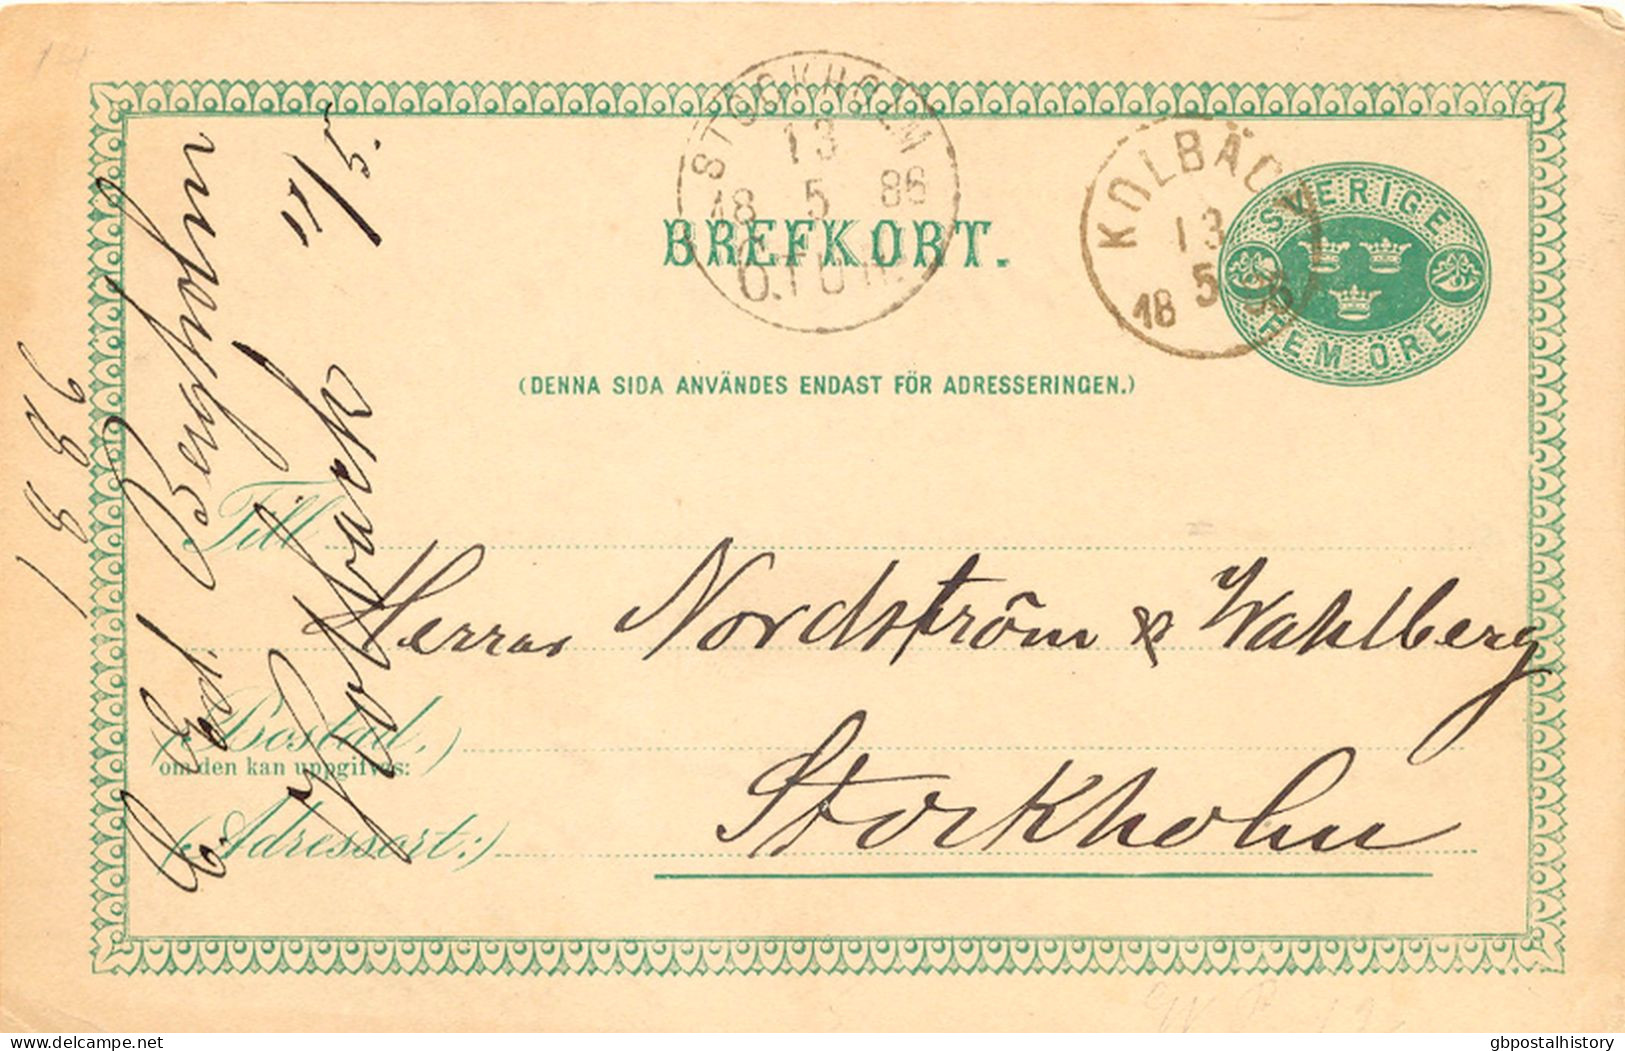 STOCKHOLM
13
18 5 86
Ö.TUR.
KOLBÄCK
13
18 5 86
SVERIGE
FEM ÖRE
BREFKORT.
(DENNA SIDA ANVÄNDES ENDAST FÖR ADRESSERINGEN.)
Till
Herrar Nordström & Wahlberg
(Bostad,)
om den kan uppgifvas:
Stockholm
(Adressort:)
Ed. Bergholm
Kolbäck
/5.
1886
delcampe.net
gbpostalhistory